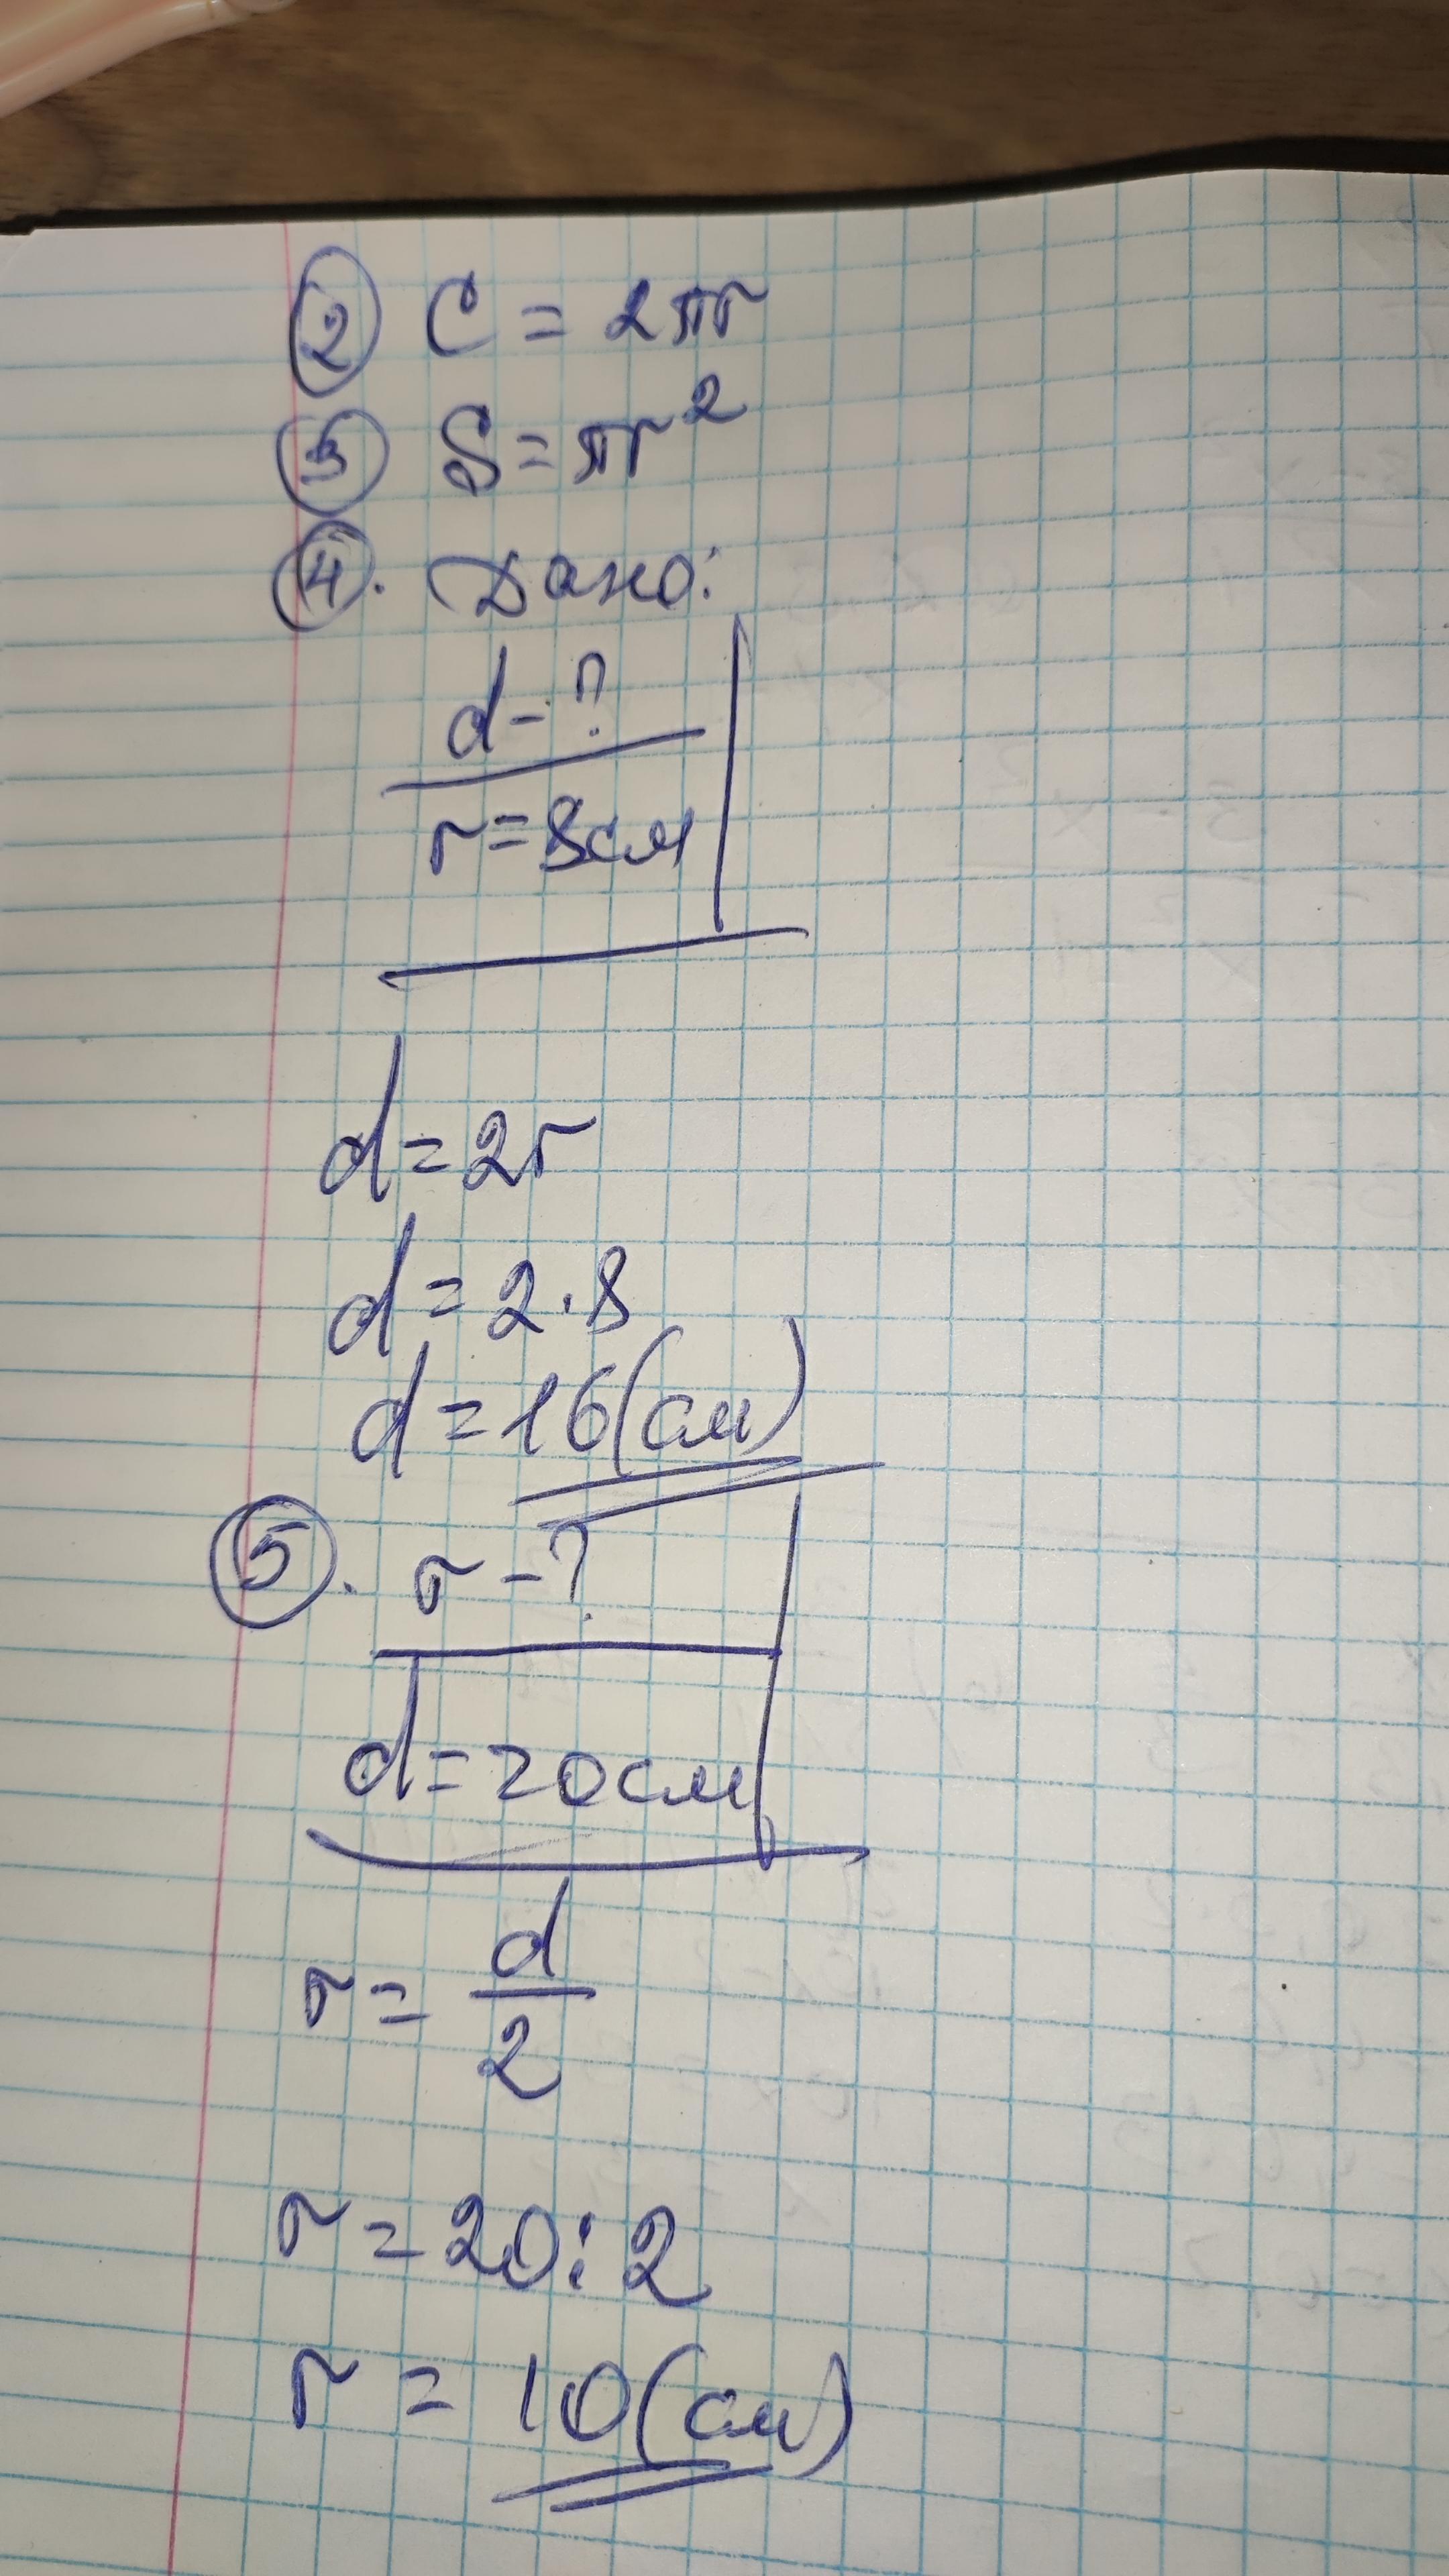 ② C = 2πr
③ S = πr²
④. Дано:
d - ?
r = 8см
d = 2r
d = 2 · 8
d = 16 (см)
⑤. r - ?
d = 20см
r = d/2
r = 20 : 2
r = 10 (см)